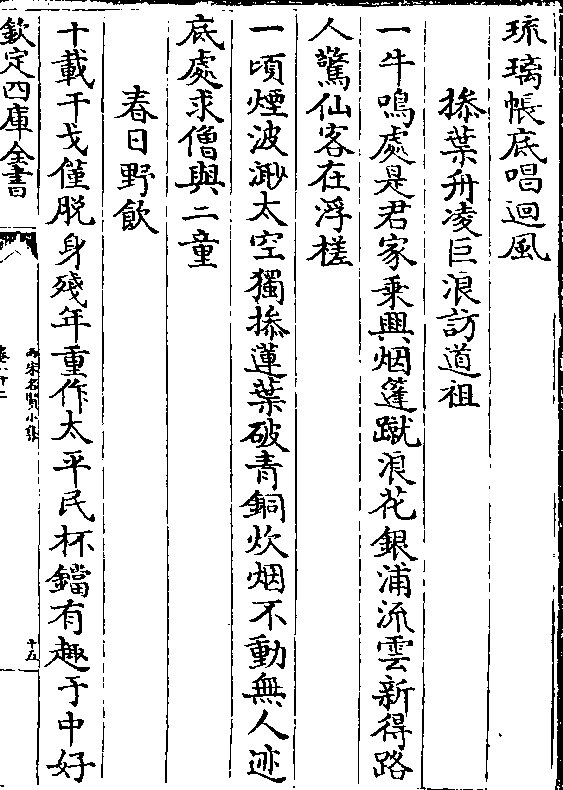 琉璃帳底唱迴風
掺葉舟凌巨浪訪道祖
一牛鳴處是君家乗興烟篷蹴浪花銀浦流雲新得路
人驚仙客在浮槎
一頃煙波渺太空獨掺蓮葉破青銅炊烟不動無人迹
底處求僧與二童
春日野飲
十載干戈僅脱身殘年重作太平民杯鐺有趣于中好
欽定四庫全書
兩宋名賢小集
十五